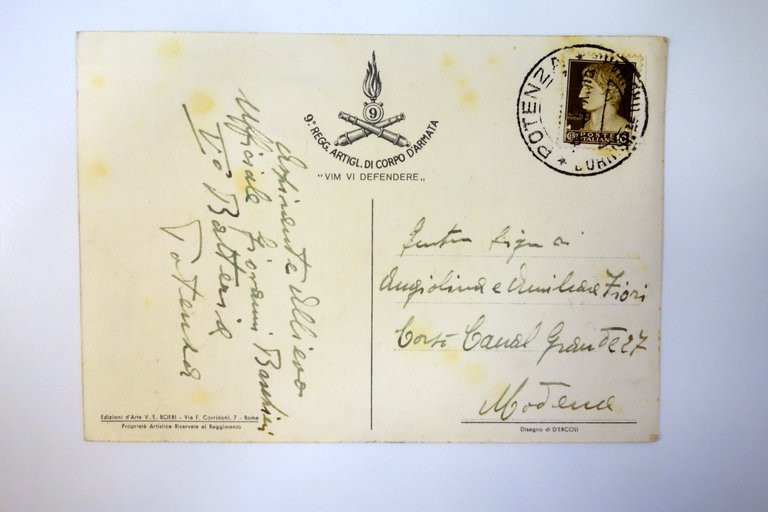 9
9º REGG. ARTIGL. DI CORPO D'ARMATA
"VIM VI DEFENDERE"
POTENZA
POSTE
ITALIANE
Aspirante Allievo
Ufficiale Giovanni
Batteria
Potenza
Angiolina e Fiori
Corso Canal Grande 27
Modena
Edizioni d'Arte V. E. BOERI - Via F. Corridoni, 7 - Rome
Proprietà Artistica Riservata al Reggimento
Disegno di D'ERCOLI